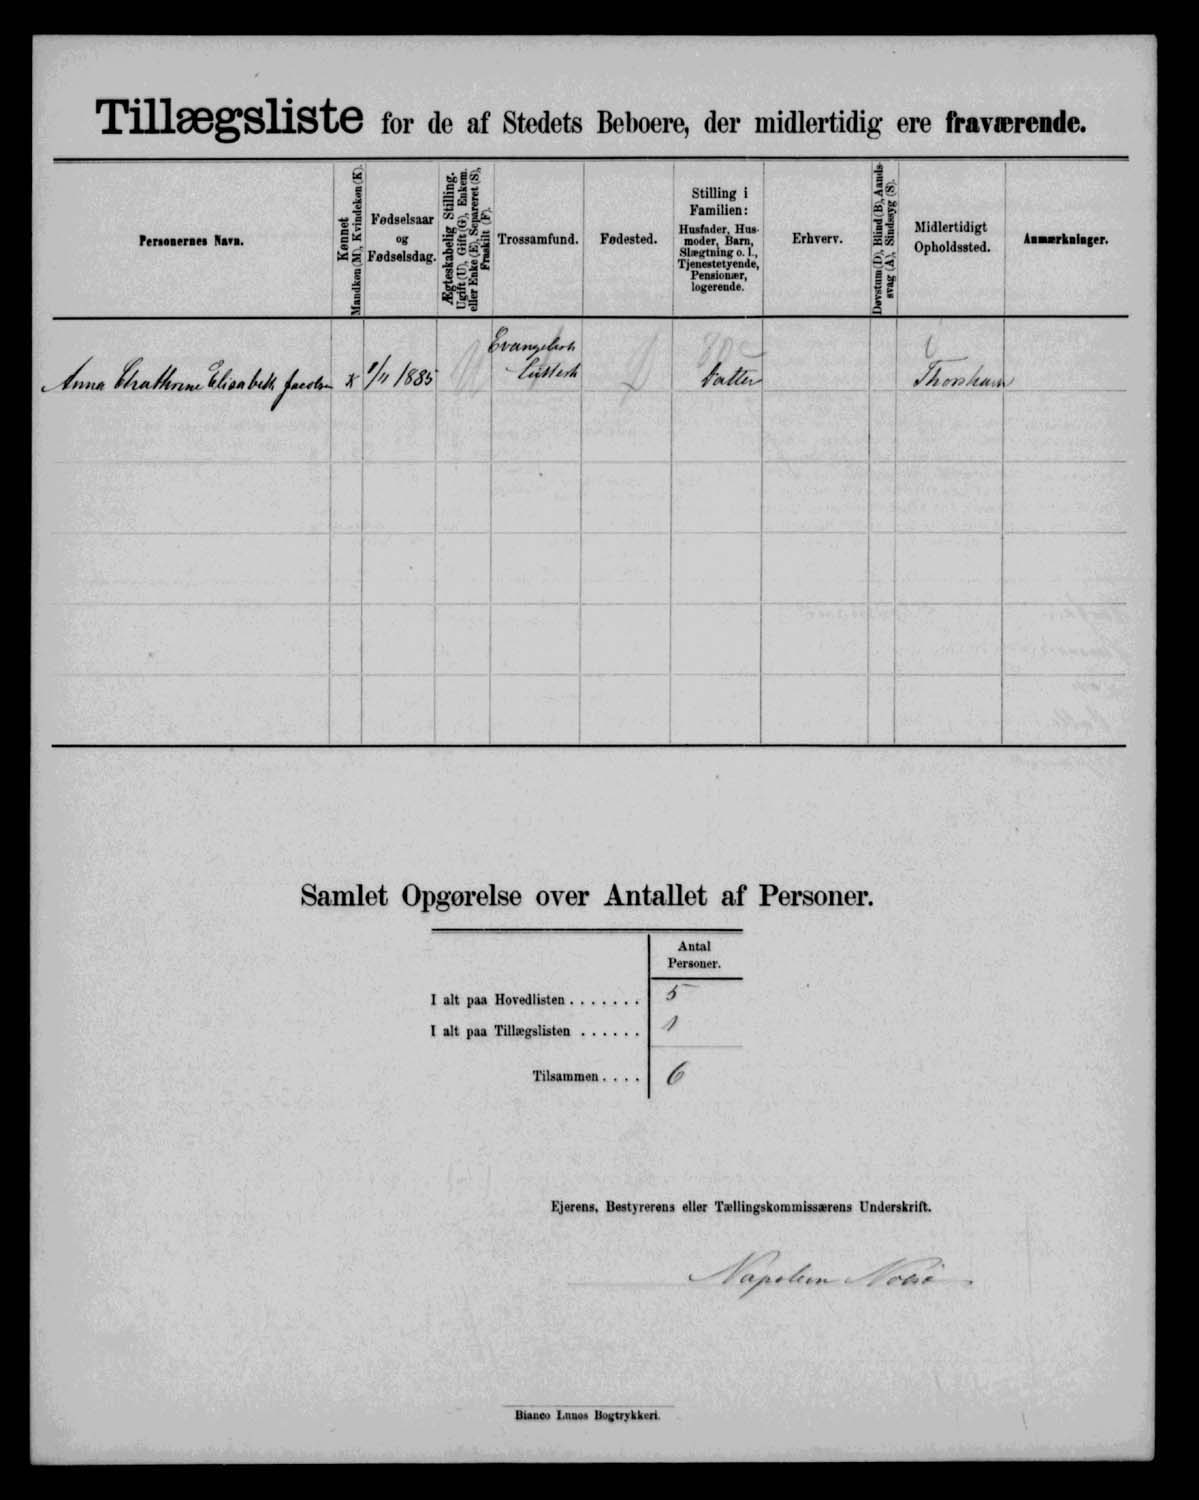 Tillægsliste for de af Stedets Beboere, der midlertidig ere fraværende.
Personernes Navn.
Kønnet
Mandkøn (M), Kvindekøn (K).
Fødselsaar
og
Fødselsdag.
Ægteskabelig Stilling.
Ugift (U), Gift (G), Enkem.
eller Enke (E), Separeret (S),
Fraskilt (F).
Trossamfund.
Fødested.
Stilling i
Familien:
Husfader, Hus-
moder, Barn,
Slægtning o. l.,
Tjenestetyende,
Pensionær,
logerende.
Erhverv.
Døvstum (D), Blind (B), Aands-
svag (A), Sindssyg (S).
Midlertidigt
Opholdssted.
Anmærkninger.
Anna Elisabeth K 1885 Evangelisk Datter Thorshavn
Samlet Opgørelse over Antallet af Personer.
Antal
Personer.
I alt paa Hovedlisten . . . . . . . 5
I alt paa Tillægslisten . . . . . . 1
Tilsammen . . . . 6
Ejerens, Bestyrerens eller Tællingskommissærens Underskrift.
Napoleon Nolsø
Bianco Lunos Bogtrykkeri.